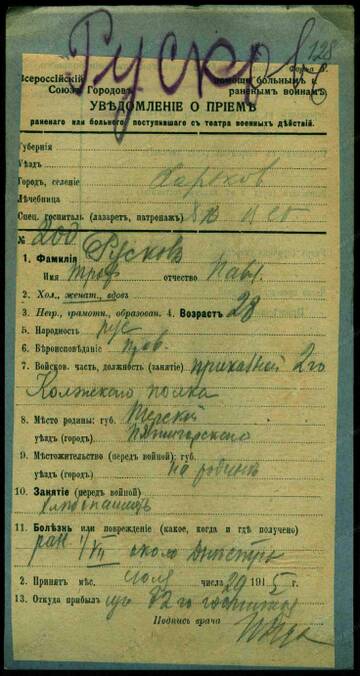 Русков
128
Форма
Всероссійскій помощи больнымъ и
Союзъ Городовъ. раненымъ воинамъ
УВѢДОМЛЕНІЕ О ПРІЕМѢ
раненаго или больного поступившаго съ театра военныхъ дѣйствій.
Губернія
Уѣздъ
Городъ, селеніе Харьков
Лѣчебница
Спец. госпиталь (лазаретъ, патронажъ)
№ 200
1. Фамилія Русков
Имя Троф отчество Павл.
2. Хол., женат., вдовъ
3. Негр., грамотн., образован. 4. Возрастъ 28
5. Народность рус
6. Вѣроисповѣданіе прав.
7. Войсков. часть, должность (занятіе) приказный 2го
полка
8. Мѣсто родины: губ. Терской
уѣздъ (городъ) Пятигорскаго
9. Мѣстожительство (передъ войной): губ.
уѣздъ (городъ) на родинѣ
10. Занятіе (передъ войной)
хлѣбопашецъ
11. Болѣзнь или поврежденіе (какое, когда и гдѣ получено)
ран. 1/VII около Днѣстра
2. Принятъ мѣс. июля числа 29 1915 г.
13. Откуда прибылъ из 82го госпиталя
Подпись врача